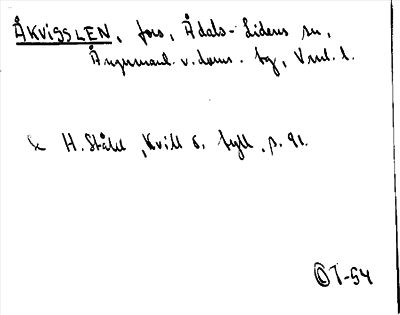 ÅKVISSLEN, fors, Ådals-Lidens sn,
Ångermanl. v. doms. by, Vnl. l.
H. Ståhl, Kvill o. fyll, p. 91.
OT-54